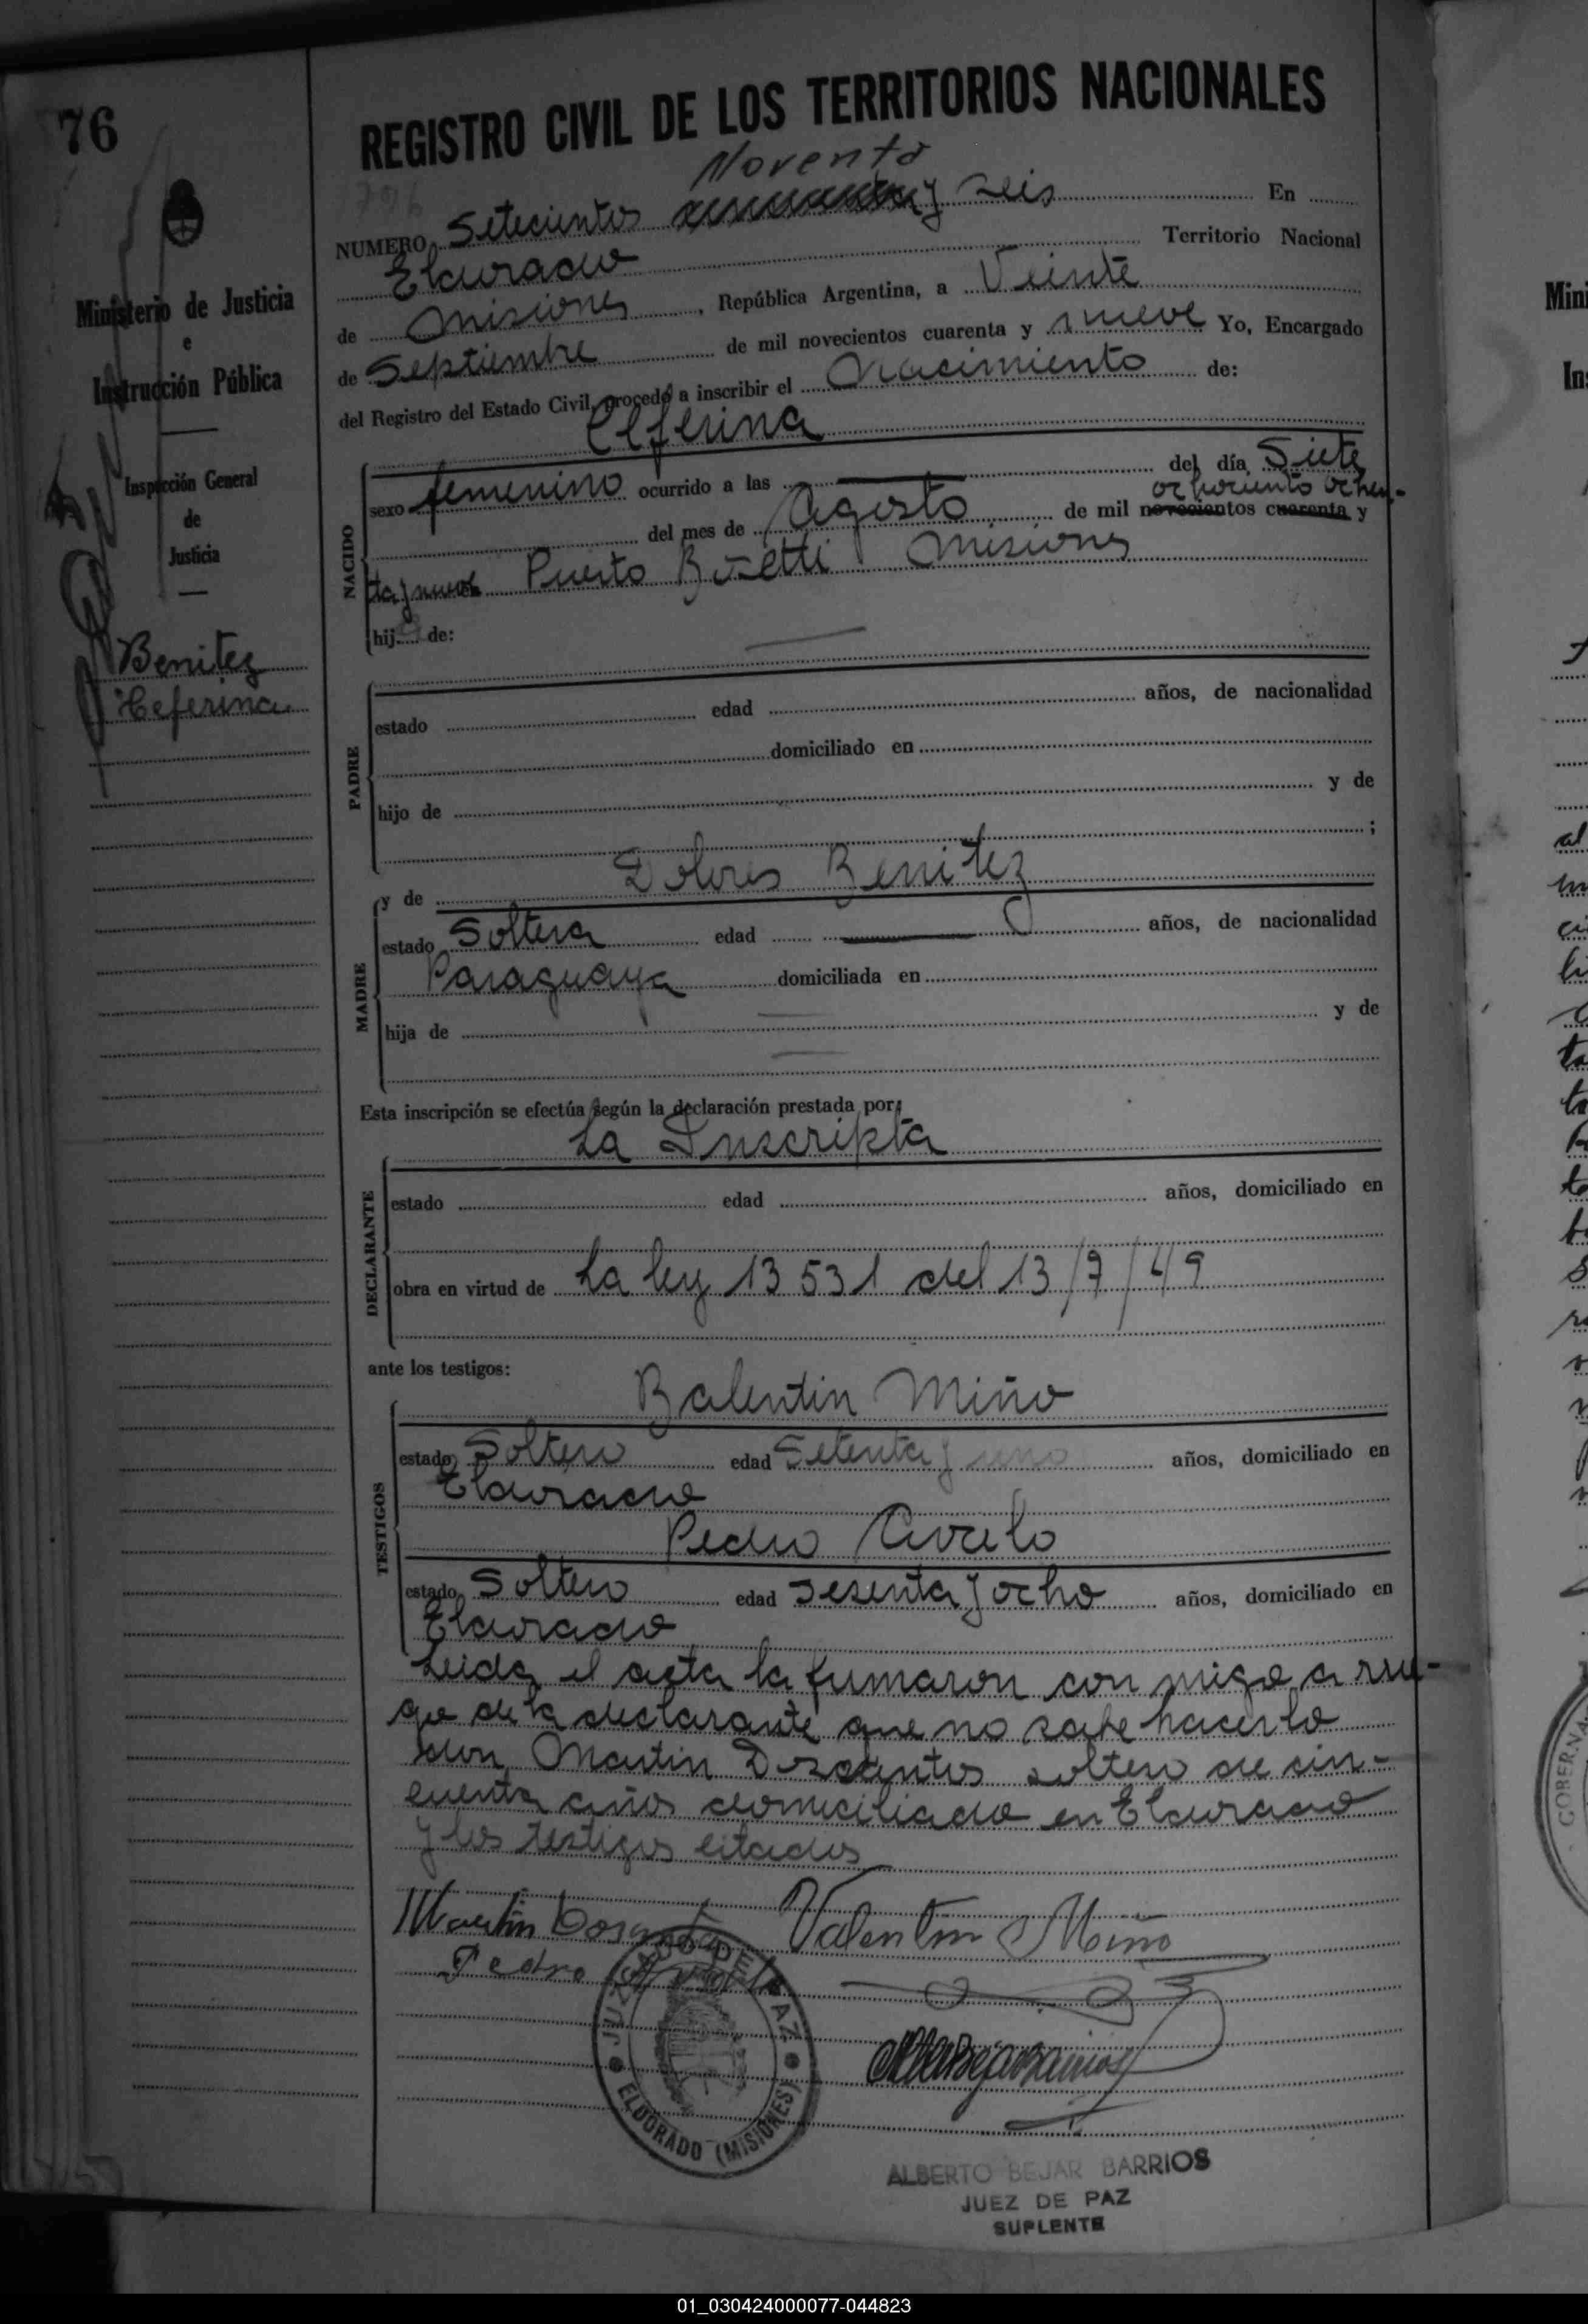 76
REGISTRO CIVIL DE LOS TERRITORIOS NACIONALES
796
Noventa
NUMERO Setecientos y seis En
Eldorado Territorio Nacional
de Misiones, República Argentina, a Veinte
de Septiembre de mil novecientos cuarenta y nueve Yo, Encargado
del Registro del Estado Civil, procedo a inscribir el Nacimiento de:
Ceferina
NACIDO
sexo femenino ocurrido a las del día Siete
ochocientos ochen-
del mes de Agosto de mil novecientos cuarenta y
ta y nueve Puerto Bosetti Misiones
hija de:
PADRE
estado edad años, de nacionalidad
domiciliado en
hijo de y de
;
MADRE
y de Dolores Benitez
estado Soltera edad años, de nacionalidad
Paraguaya domiciliada en
hija de y de
Esta inscripción se efectúa según la declaración prestada por:
La Inscripta
DECLARANTE
estado edad años, domiciliado en
obra en virtud de La ley 13531 del 13/7/49
ante los testigos:
TESTIGOS
Balentin Miño
estado Soltero edad Setenta y uno años, domiciliado en
Eldorado
Pedro
estado Soltero edad Sesenta y ocho años, domiciliado en
Eldorado
Leida el acta la fumaron con migo a rue-
go de la declarante que no sabe hacerlo
don Martin soltero de cin-
cuenta años domiciliado en Eldorado
y los testigos citados
Martin
Valentin Miño
Pedro
JUZGADO DE PAZ
ELDORADO (MISIONES)
ALBERTO BEJAR BARRIOS
JUEZ DE PAZ
SUPLENTE
Ministerio de Justicia
e
Instrucción Pública
Inspección General
de
Justicia
Benitez
Ceferina
Mini
In
GOBERNA
01_030424000077-044823